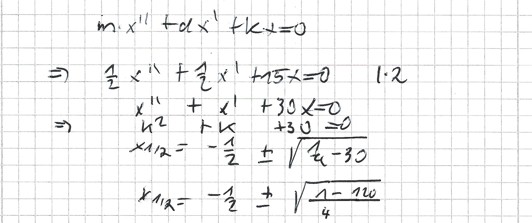 m·x'' + dx' + kx = 0
⇒ 1/2 x'' + 1/2 x' + 15x = 0 | · 2
x'' + x' + 30x = 0
⇒ k² + k + 30 = 0
x1,2 = - 1/2 ± √(1/4 - 30)
x1,2 = - 1/2 ± √((1 - 120)/4)